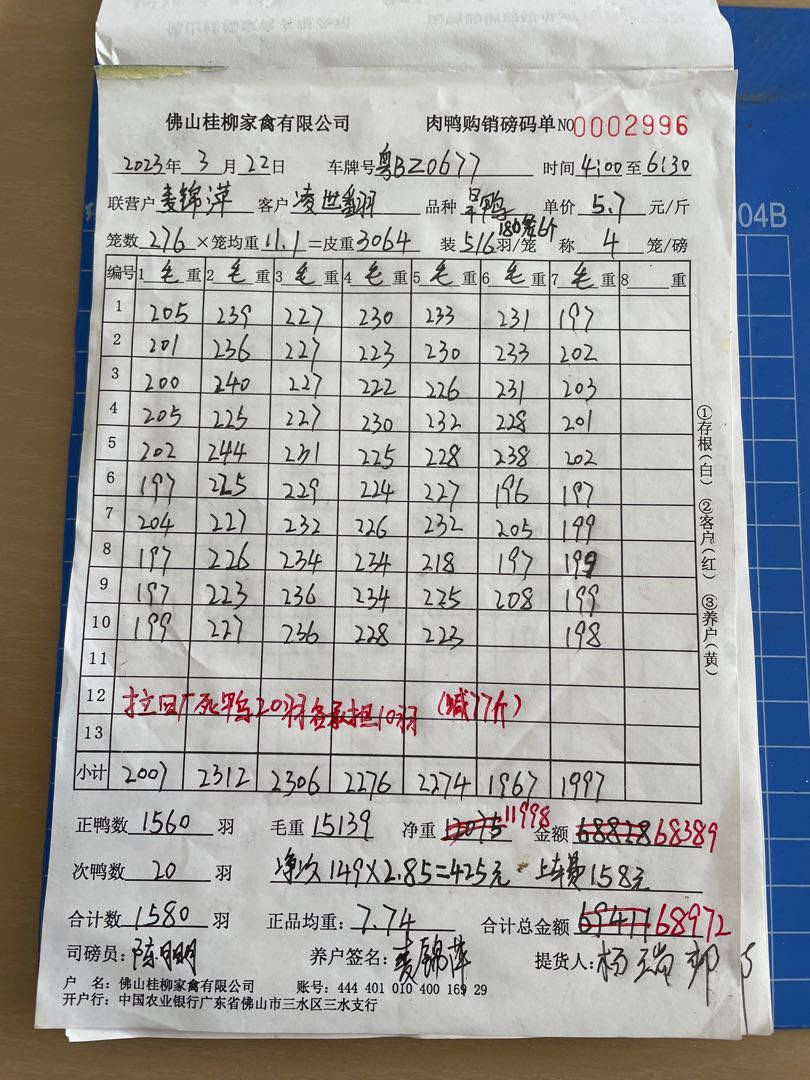 佛山桂柳家禽有限公司 肉鸭购销磅码单 NO 0002996
2023年 3月 22日 车牌号 粤BZ0677 时间 4:00 至 6:30
联营户 麦锦萍 客户 凌世翻 品种 鸭 单价 5.7 元/斤
180笼6个
笼数 276 ×笼均重 11.1 =皮重 3064 装 5/6 羽/笼 称 4 笼/磅
编号 1 毛 重 2 毛 重 3 毛 重 4 毛 重 5 毛 重 6 毛 重 7 毛 重 8 重
1 205 239 227 230 233 231 197
2 201 236 227 223 230 233 202
3 200 240 227 222 226 231 203
4 205 225 227 230 232 228 201
5 202 244 231 225 228 238 202
6 197 225 229 224 227 196 197
7 204 227 232 226 232 205 199
8 197 226 234 234 218 197 199
9 197 223 236 234 225 208 199
10 199 227 236 228 223 198
11
12 拉回厂死鸭20羽各承担10羽 (减77斤)
13
小计 2007 2312 2306 2276 2274 1967 1997
正鸭数 1560 羽 毛重 15139 净重 12075 11998 金额 68828 68389
次鸭数 20 羽 净次 149×2.85=425元 上车费158元
合计数 1580 羽 正品均重: 7.74 合计总金额 69411 68972
司磅员: 陈明 养户签名: 麦锦萍 提货人: 杨瑞
户 名: 佛山桂柳家禽有限公司 账号: 444 401 010 400 169 29
开户行: 中国农业银行广东省佛山市三水区三水支行
①存根(白) ②客户(红) ③养户(黄)
04B